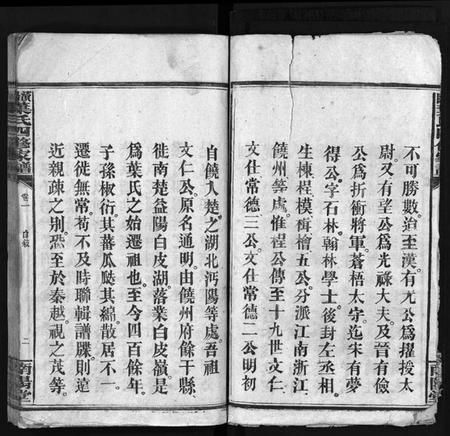 不可勝數迨至漢有尤公為擢拔太
尉又有望公為光祿大夫及晉有儉
公為折衝將軍蒼梧太守迄宋有夢
得公字石林翰林學士後封左丞相
生棟桯模楫檜五公分派江南浙江
饒州等處惟桯公傳至十九世文仁
公文仕常德三公文仕常德二公明初
自饒入楚之湖北沔陽等處吾祖
文仁公原名通明由饒州府餘干縣
徙南楚益陽白皮湖落業白皮嶺是
為葉氏之始遷祖也至今四百餘年
子孫椒衍其蕃瓜瓞其綿散居不一
遷徙無常苟不及時聯輯譜牒則遠
近親疎之別恐至於秦越視之茂等
葉氏四修家譜
卷一
二
南陽堂